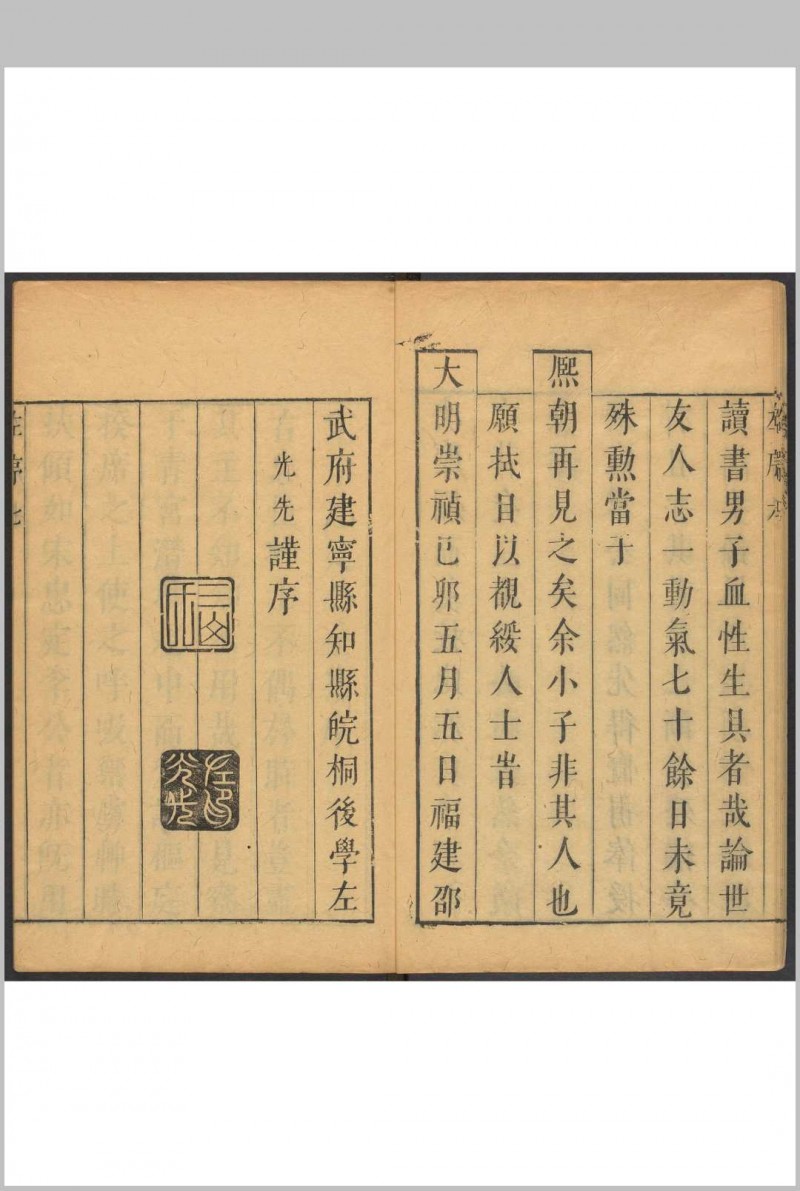 讀書男子血性生具者哉論世
友人志一動氣七十餘日未竟
殊勳當于
熈朝再見之矣余小子非其人也
願拭目以覩綏人士旹
大明崇禎己卯五月五日福建邵
武府建寧縣知縣皖桐後學左
光先謹序
左印光先
左序七